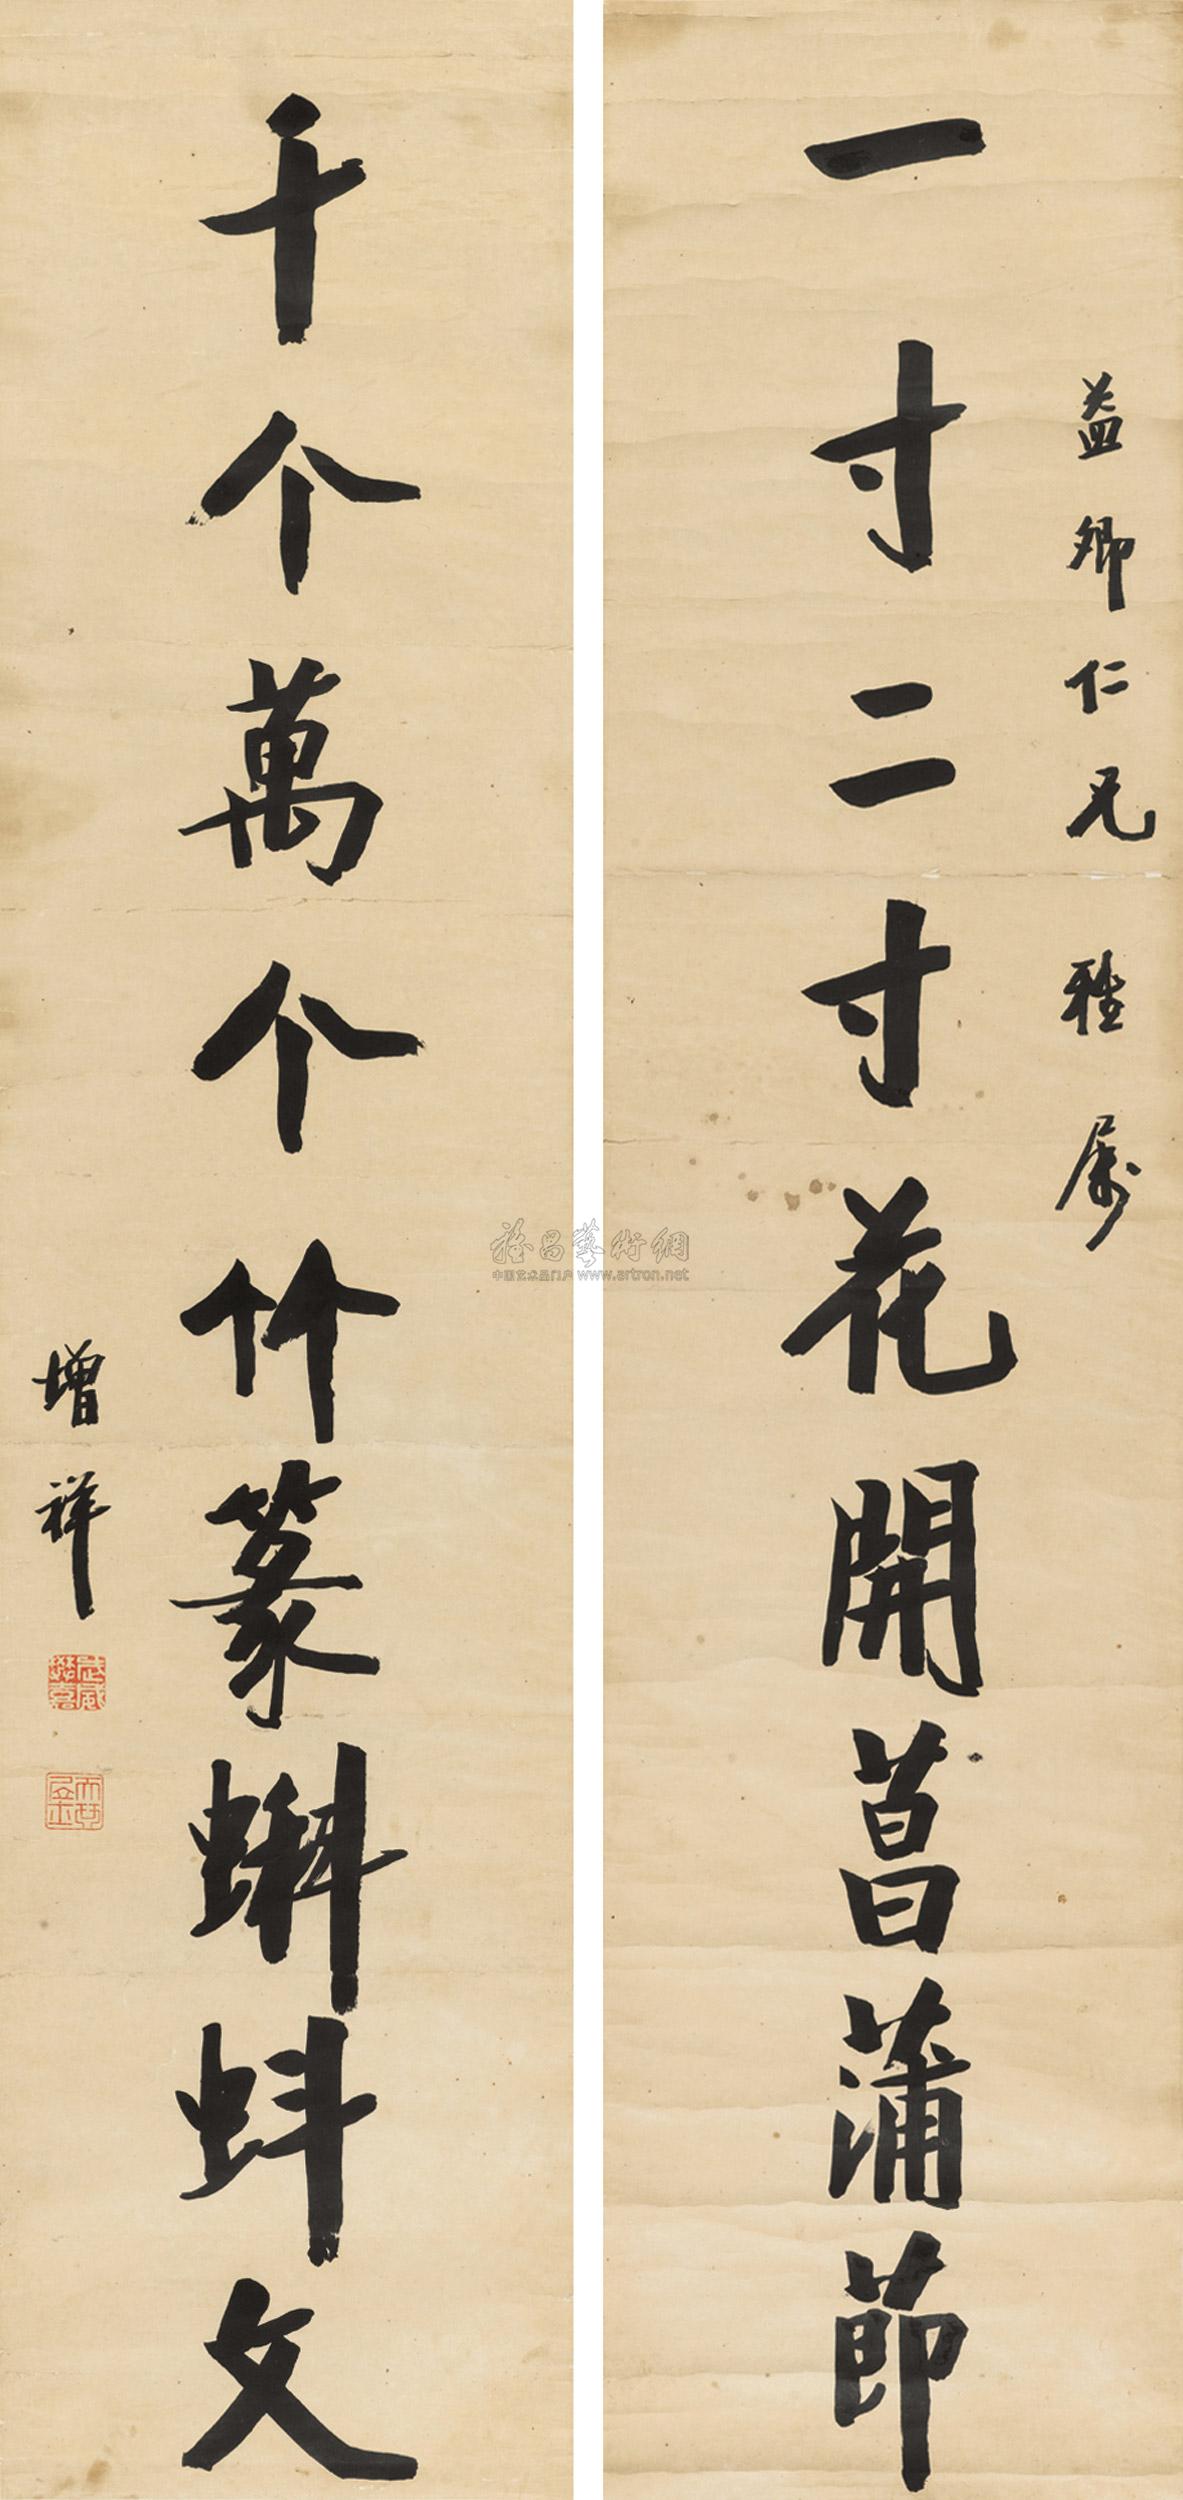 益卿仁兄雅屬
一寸二寸花開菖蒲節
千个萬个竹篆蝌蚪文
增祥
雅昌藝術網
中国艺术品门户 www.artron.net